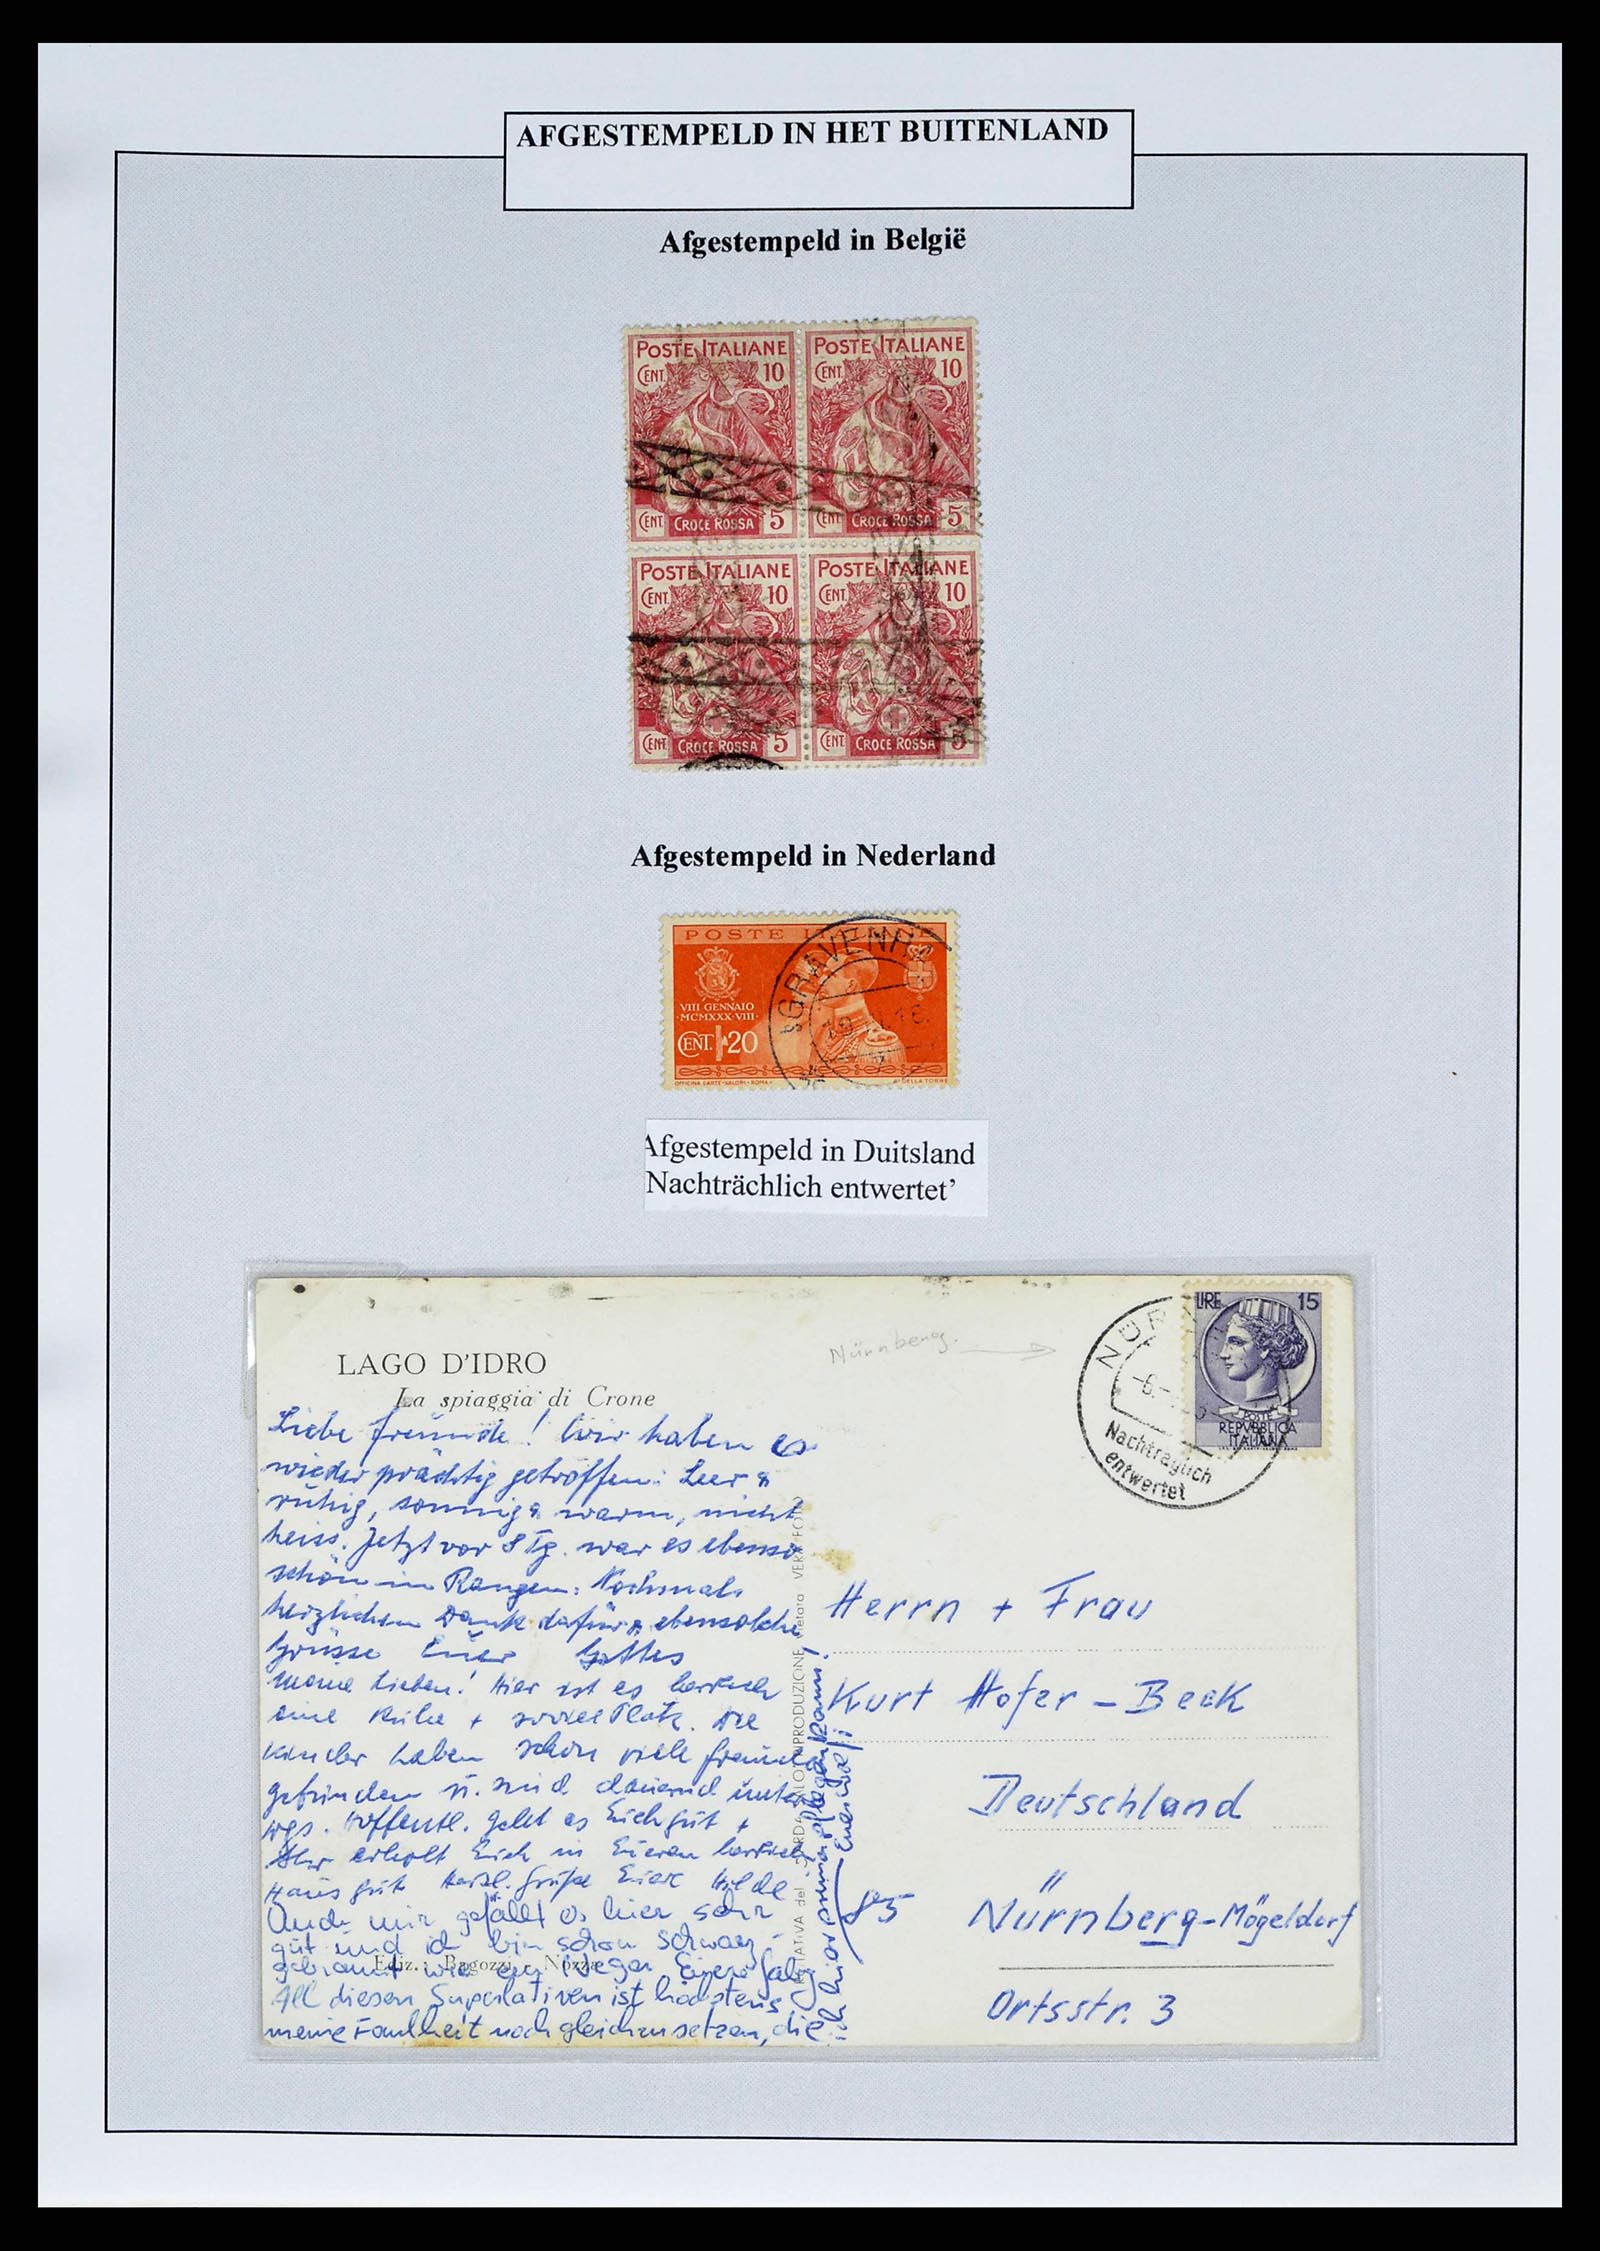 AFGESTEMPELD IN HET BUITENLAND
Afgestempeld in België
POSTE ITALIANE POSTE ITALIANE
CENT. 10 CENT. 10
CENT. CROCE ROSSA 5 CENT. CROCE ROSSA 5
POSTE ITALIANE POSTE ITALIANE
CENT. 10 CENT. 10
CENT. CROCE ROSSA 5 CENT. CROCE ROSSA 5
Afgestempeld in Nederland
POSTE
'sGRAVENHA
VIII GENNAIO
·MCMXXX·VIII·
CENT. 20
OFFICINA CARTE-VALORI-ROMA
DELLA TORRE
Afgestempeld in Duitsland
Nachträchlich entwertet’
LIRE 15
POSTE
REPVBBLICA
ITALIANA
NÜR
Nachträglich
entwertet
Nürnberg.
LAGO D'IDRO
La spiaggia di Crone
Liebe Freunde! Wir haben es
wieder prächtig getroffen: Leer &
ruhig, sonnig & warm, nicht
heiss. Jetzt vor 8 Tg. war es ebenso
schön in Rangen: Nochmals
herzlichen Dank dafür & ebensolche
Grüsse Euer
Meine Lieben! Hier ist es herrlich
eine Ruhe + soviel Platz. Die
Kinder haben schon viele Freunde
gefunden u. sind dauernd unter
wgs. Hoffentl. geht es Euch gut +
Ihr erholt Euch in Eurem herrlich
Haus gut. Herzl. Grüße Eure Hilde
Auch mir gefällt es hier sehr
gut und ich bin schon schwarz-
gebrannt wie ein Neger Eure Gaby
All diesen Superlativen ist höchstens
meine Faulheit noch gleichzusetzen, die
ich hier immer pflegen kann!
Ediz.: Ragozzi - Nozza
VERA FOTO
RIPRODUZIONE vietata
Herrn + Frau
Kurt Hofer - Beck
Deutschland
85 Nürnberg-Mögeldorf
Ortsstr. 3